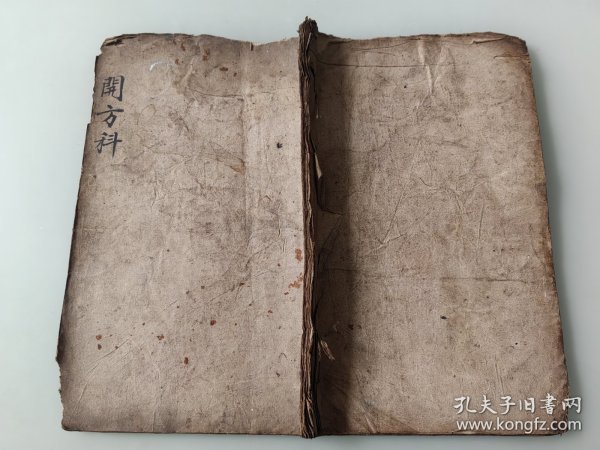 開方科
孔夫子旧書网
www.kongfz.com